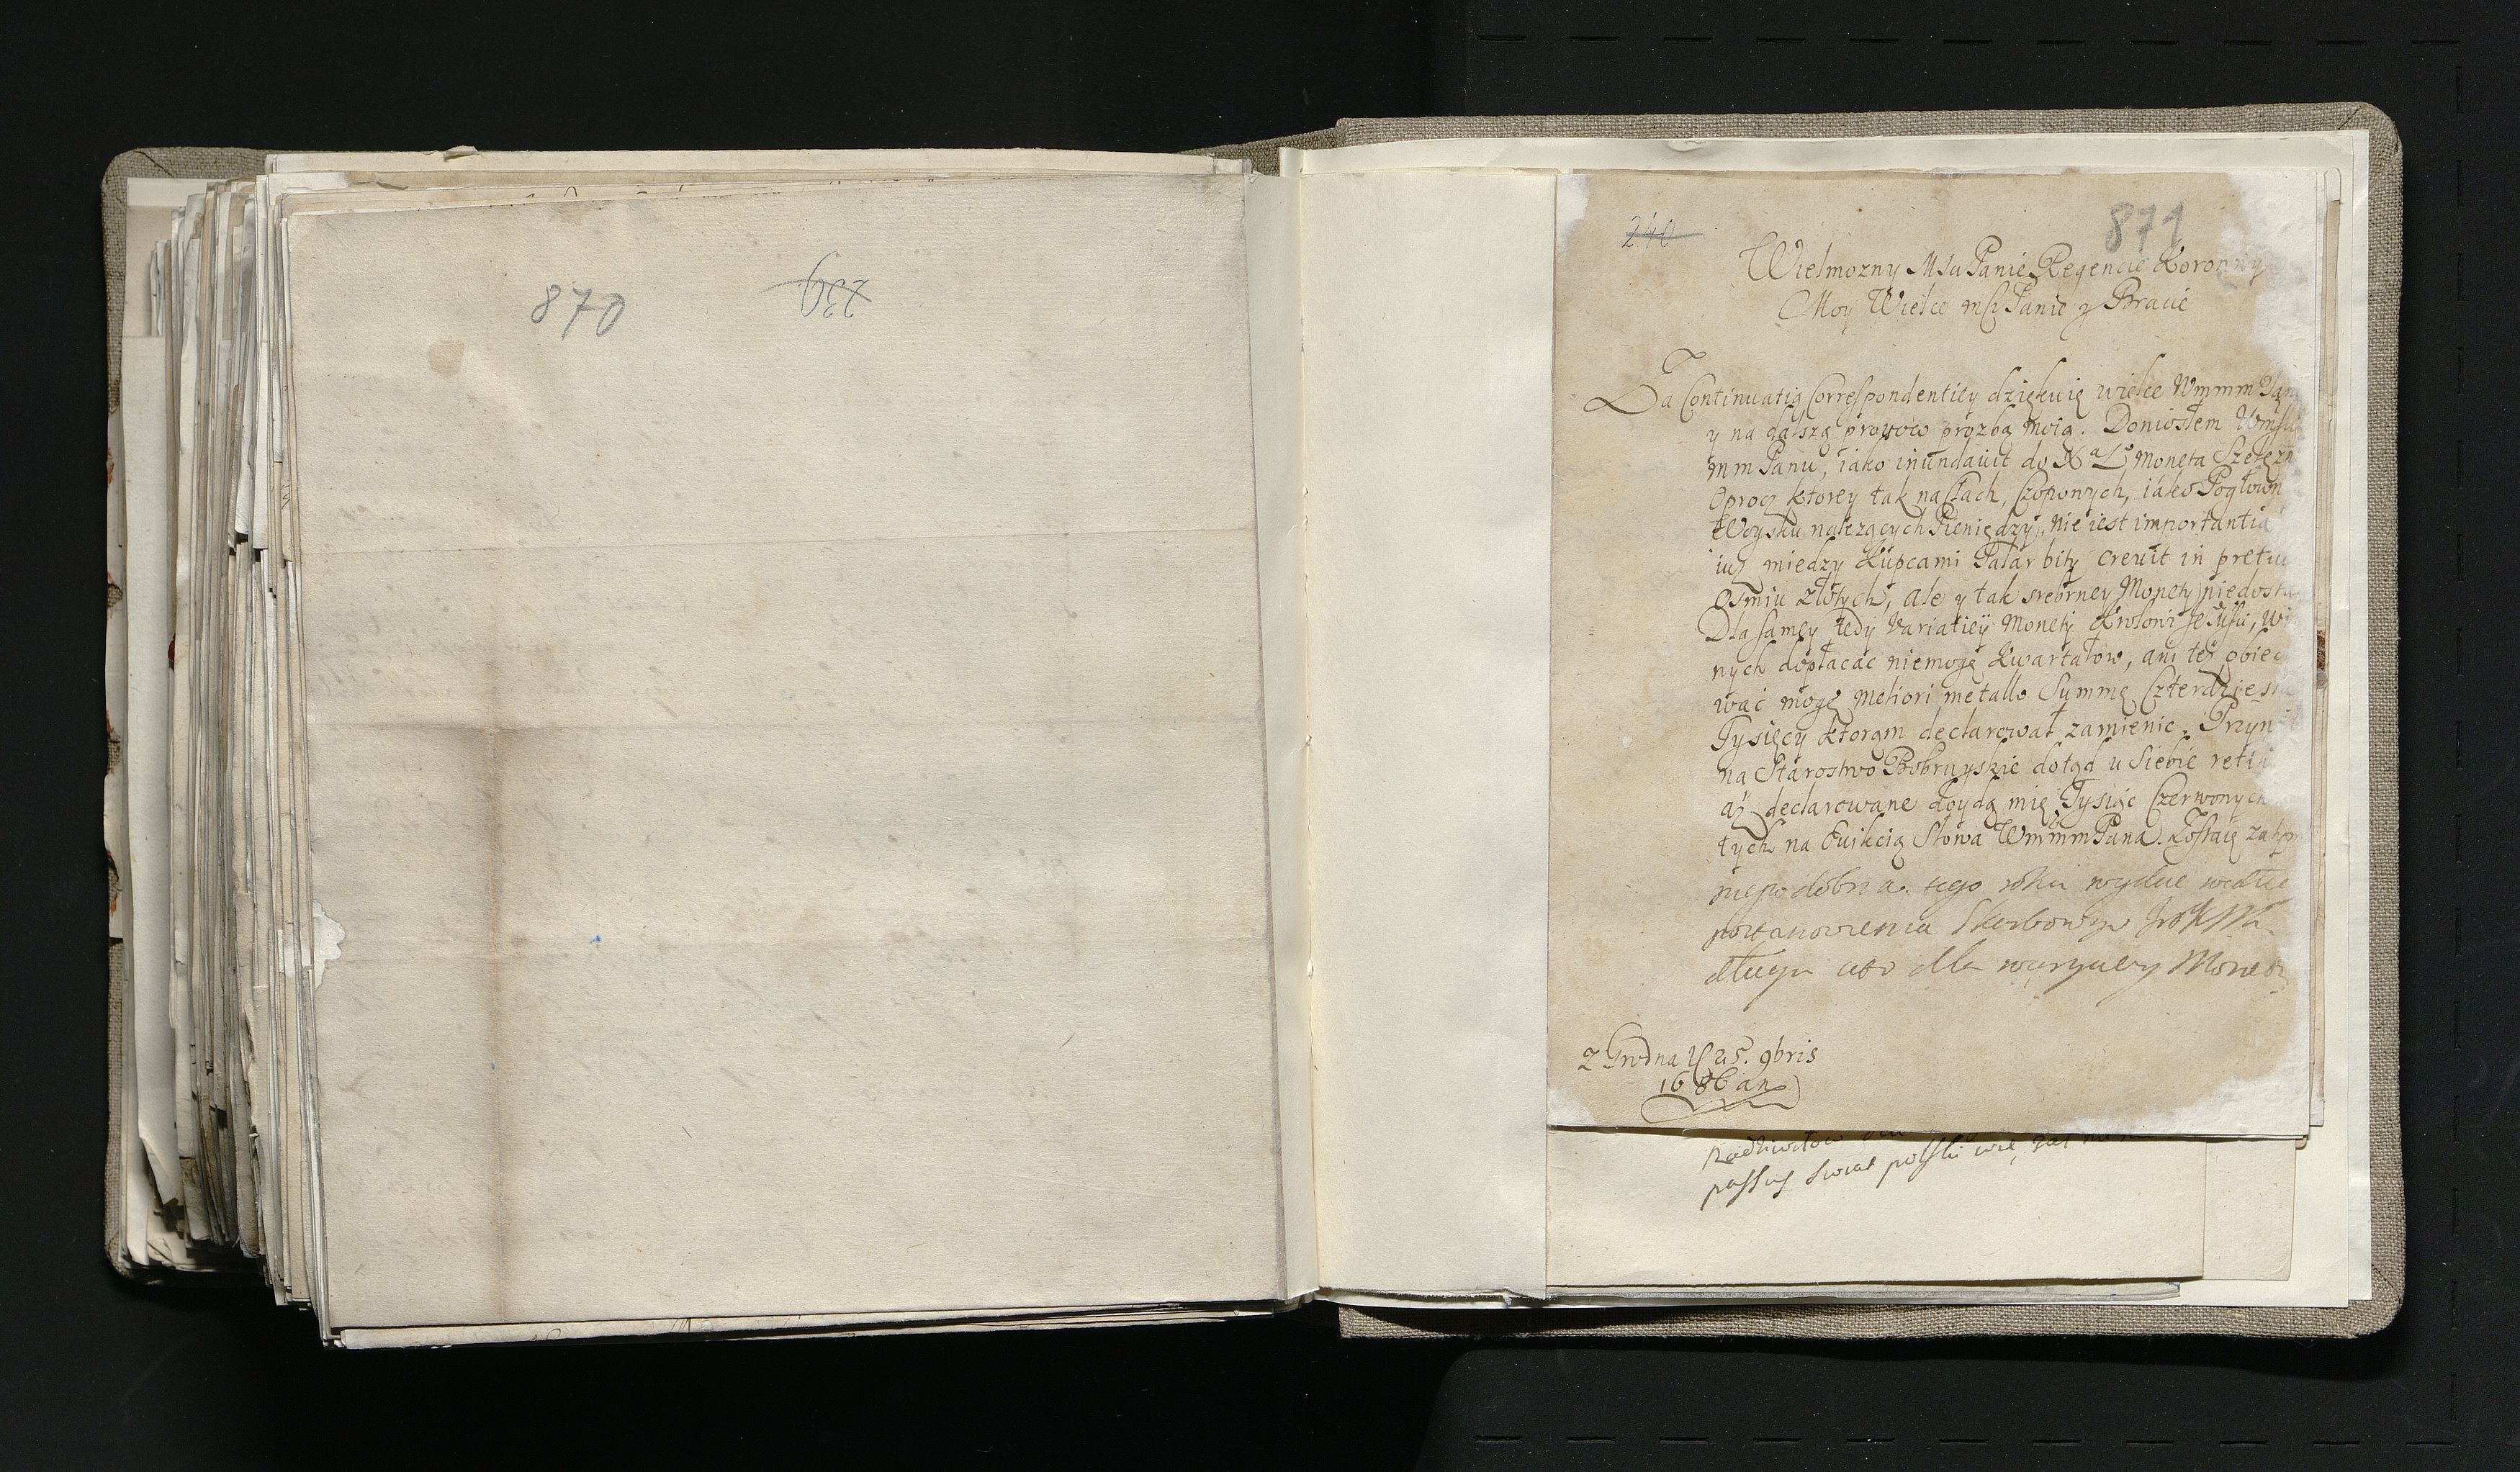 870
239
240
871
Wielmozny MSu Panie Regencie Koronny
Moy Wielce mSci Panie y Bracie
Za Continuatią Correspondentiey dziękuię wielce Wmmm Pan
y na dalszą prowoco prozbą moią. Doniosłem
mm Panu, iako inundauit do Moneta Szeląż
Oprocz ktorey tak na Cłach, Czopowych, iako Pogłown
Woysku nalezących Pieniędzy, nie iest importantia
iuz miedzy Kupcami Talar bity creuit in pretiu
Osmiu złotych, ale y tak srebrney Monety niedosta
Dla samey tedy Variatiey Monety Krolowi Je
nych dopłacac niemogę Kwartałow, ani tez obiec
wać mogę meliori metallo Summę Czterdzies
Tysięcy ktorąm declarował zamienic. Przyn
na Starostwo Bobruyskie dotąd u Siebie reti
az declarowane doydą mię Tysiąc Czerwonych
tych na Euikcią Słowa Wmmm Pana. Zostaię
tego roku wydac wedle
postanowienia Skarbowego
długu dla Monet
Z Grodna 25. 9bris
1686 an
Radziwiłow
passus swiat polski wie,